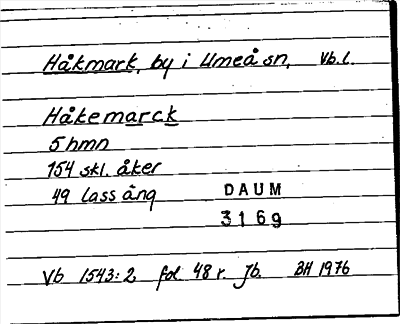 Håkmark, by i Umeå sn, Vb.l.
Håkemarck
5 hmn
154 skl. åker
49 lass äng
DAUM
3169
Vb 1543:2 fol 48 r Jb. BH 1976